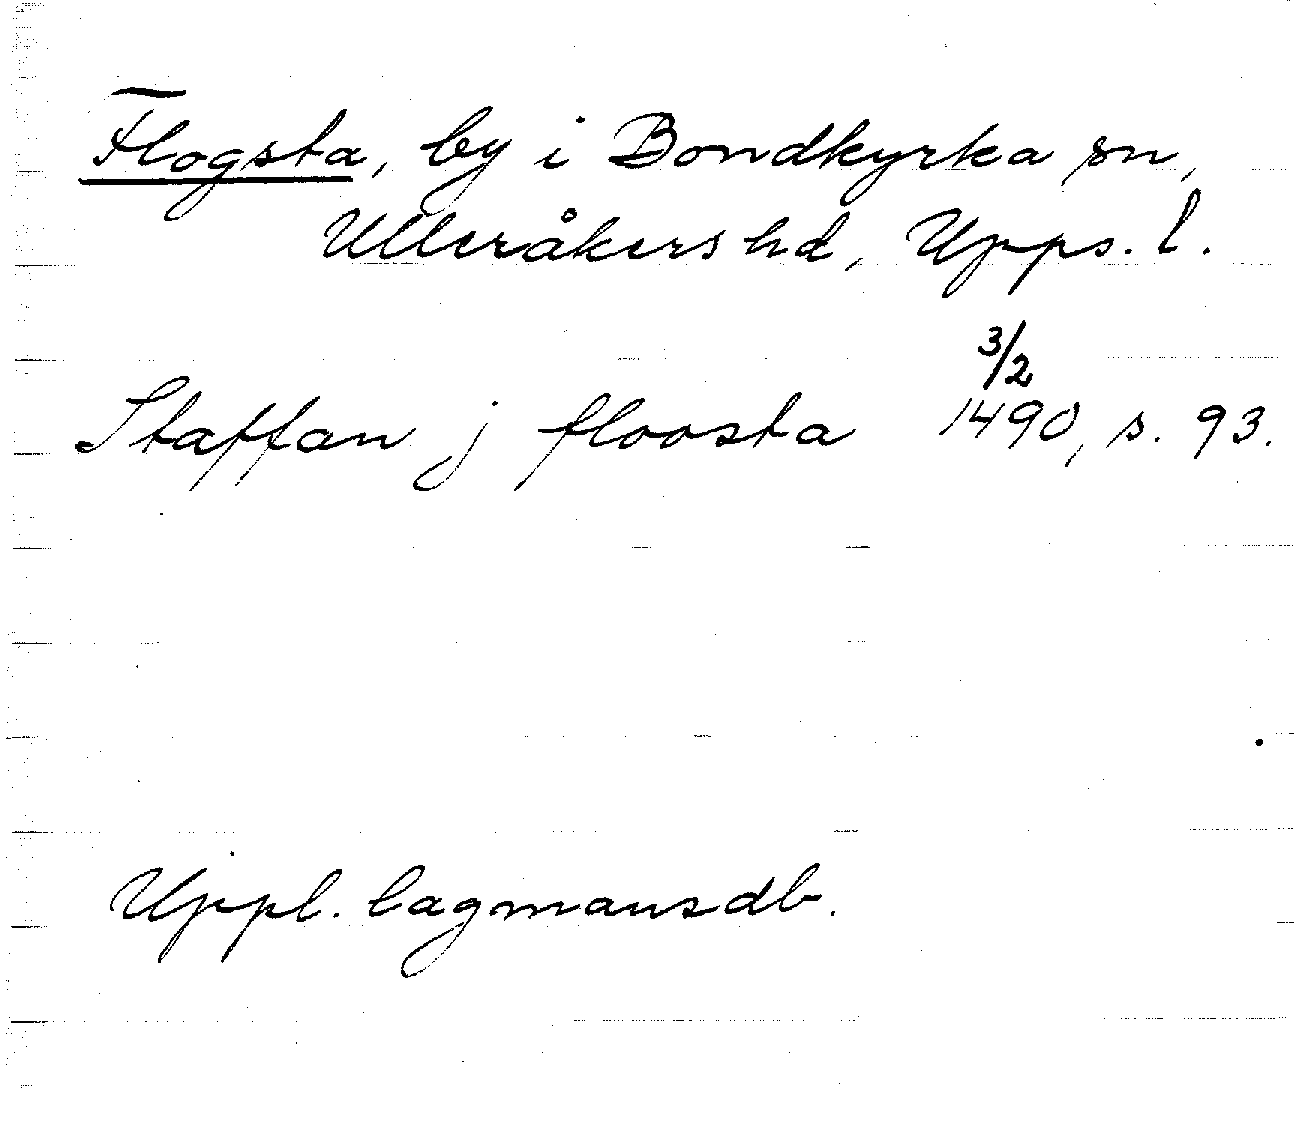 Flogsta, by i Bondkyrka sn,
Ulleråkers hd, Upps. l.
3/2
Staffan j floosta 1490, s. 93.
Uppl. lagmansdb.